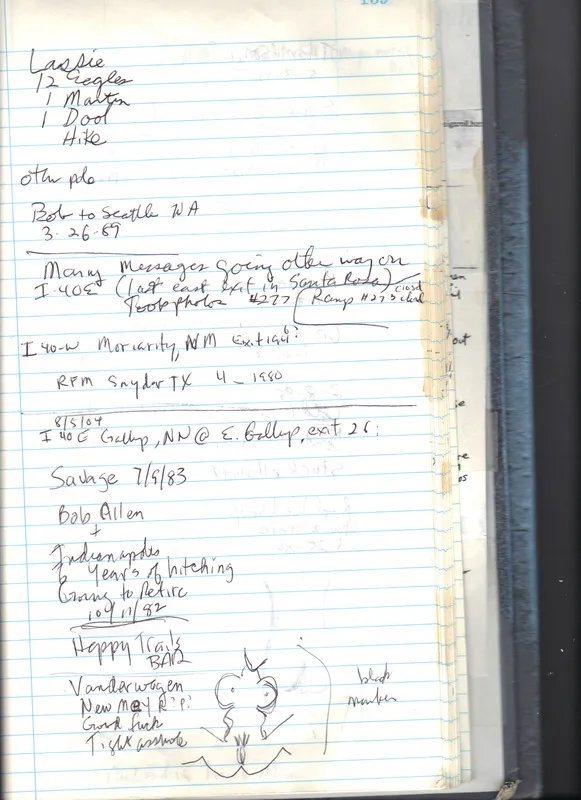 Lassie
12 Eagles
1 Martin
1 Door
Hike
other pole
Bob to Seattle WA
3-26-89
Many Messages going other way on
I-40E (last east exit in Santa Rosa)
Took photos #277 Ramp #273 closed
I 40-W Moriarity, NM Exit 194?
RFM Snyder TX 4-1980
8/5/04
I 40E Gallup, NN @ E. Gallup, exit 26:
Savage 7/9/83
Bob Allen
+
Indianapolis
6 Years of hitching
Going to Retire
10/11/82
Happy Trails
BAR
Vanderwagen
New M
Good fuck
Tight asshole
black
marker